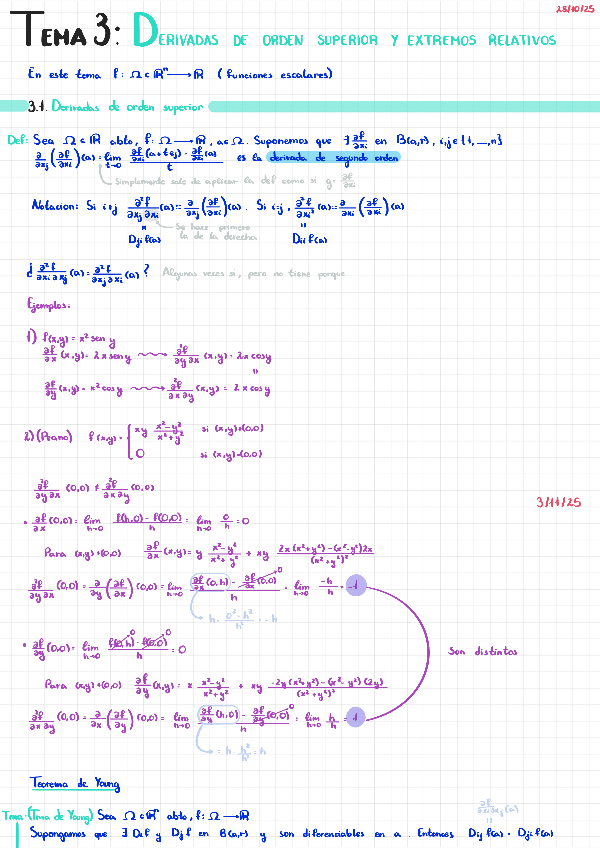 28/10/25
TEMA 3: DERIVADAS DE ORDEN SUPERIOR Y EXTREMOS RELATIVOS
En este tema f: Ω⊂ℝⁿ → ℝ (funciones escalares)
3.1. Derivadas de orden superior
Def: Sea Ω⊂ℝ abto, f: Ω → ℝ, a∈Ω. Suponemos que ∃ ∂f/∂xi en B(a,r), i,j∈{1,...,n}
∂/∂xj (∂f/∂xi)(a) = lim t→0 (∂f/∂xi (a+tej) - ∂f/∂xi (a))/t es la derivada de segundo orden
Simplemente sale de aplicar la def como si g = ∂f/∂xi
Notacion: Si i≠j ∂²f/∂xj∂xi (a) = ∂/∂xj (∂f/∂xi)(a). Si i=j, ∂²f/∂xi² (a) = ∂/∂xi (∂f/∂xi)(a)
Se hace primero
la de la derecha
Djif(a) Diif(a)
¿ ∂²f/∂xi∂xj (a) = ∂²f/∂xj∂xi (a) ? Algunas veces si, pero no tiene porque
Ejemplos:
1) f(x,y) = x² sen y
∂f/∂x (x,y) = 2x sen y ⟿ ∂²f/∂y∂x (x,y) = 2x cos y
=
∂f/∂y (x,y) = x² cos y ⟿ ∂²f/∂x∂y (x,y) = 2x cos y
2) (Peano) f(x,y) = { xy (x²-y²)/(x²+y²) si (x,y)≠(0,0)
0 si (x,y)=(0,0)
∂²f/∂y∂x (0,0) ≠ ∂²f/∂x∂y (0,0)
3/11/25
• ∂f/∂x (0,0) = lim h→0 (f(h,0) - f(0,0))/h = lim h→0 0/h = 0
Para (x,y)≠(0,0) ∂f/∂x (x,y) = y (x²-y²)/(x²+y²) + xy (2x(x²+y²) - (x²-y²)2x)/(x²+y²)²
∂²f/∂y∂x (0,0) = ∂/∂y (∂f/∂x)(0,0) = lim h→0 (∂f/∂x (0,h) - ∂f/∂x (0,0))/h = lim h→0 -h/h = -1
0
h · (0²-h²)/h² = -h
• ∂f/∂y (0,0) = lim h→0 (f(0,h) - f(0,0))/h = 0
0 0
Son distintos
Para (x,y)≠(0,0) ∂f/∂y (x,y) = x (x²-y²)/(x²+y²) + xy (-2y(x²+y²) - (x²-y²)(2y))/(x²+y²)²
∂²f/∂x∂y (0,0) = ∂/∂x (∂f/∂y)(0,0) = lim h→0 (∂f/∂y (h,0) - ∂f/∂y (0,0))/h = lim h→0 h/h = 1
0
= h · h²/h² = h
Teorema de Young
∂²f/∂xi∂xj (a)
Tma: (Tma de Young) Sea Ω⊂ℝⁿ abto, f: Ω → ℝ
Supongamos que ∃ Dif y Djf en B(a,r) y son diferenciables en a. Entonces Dijf(a) = Djif(a)